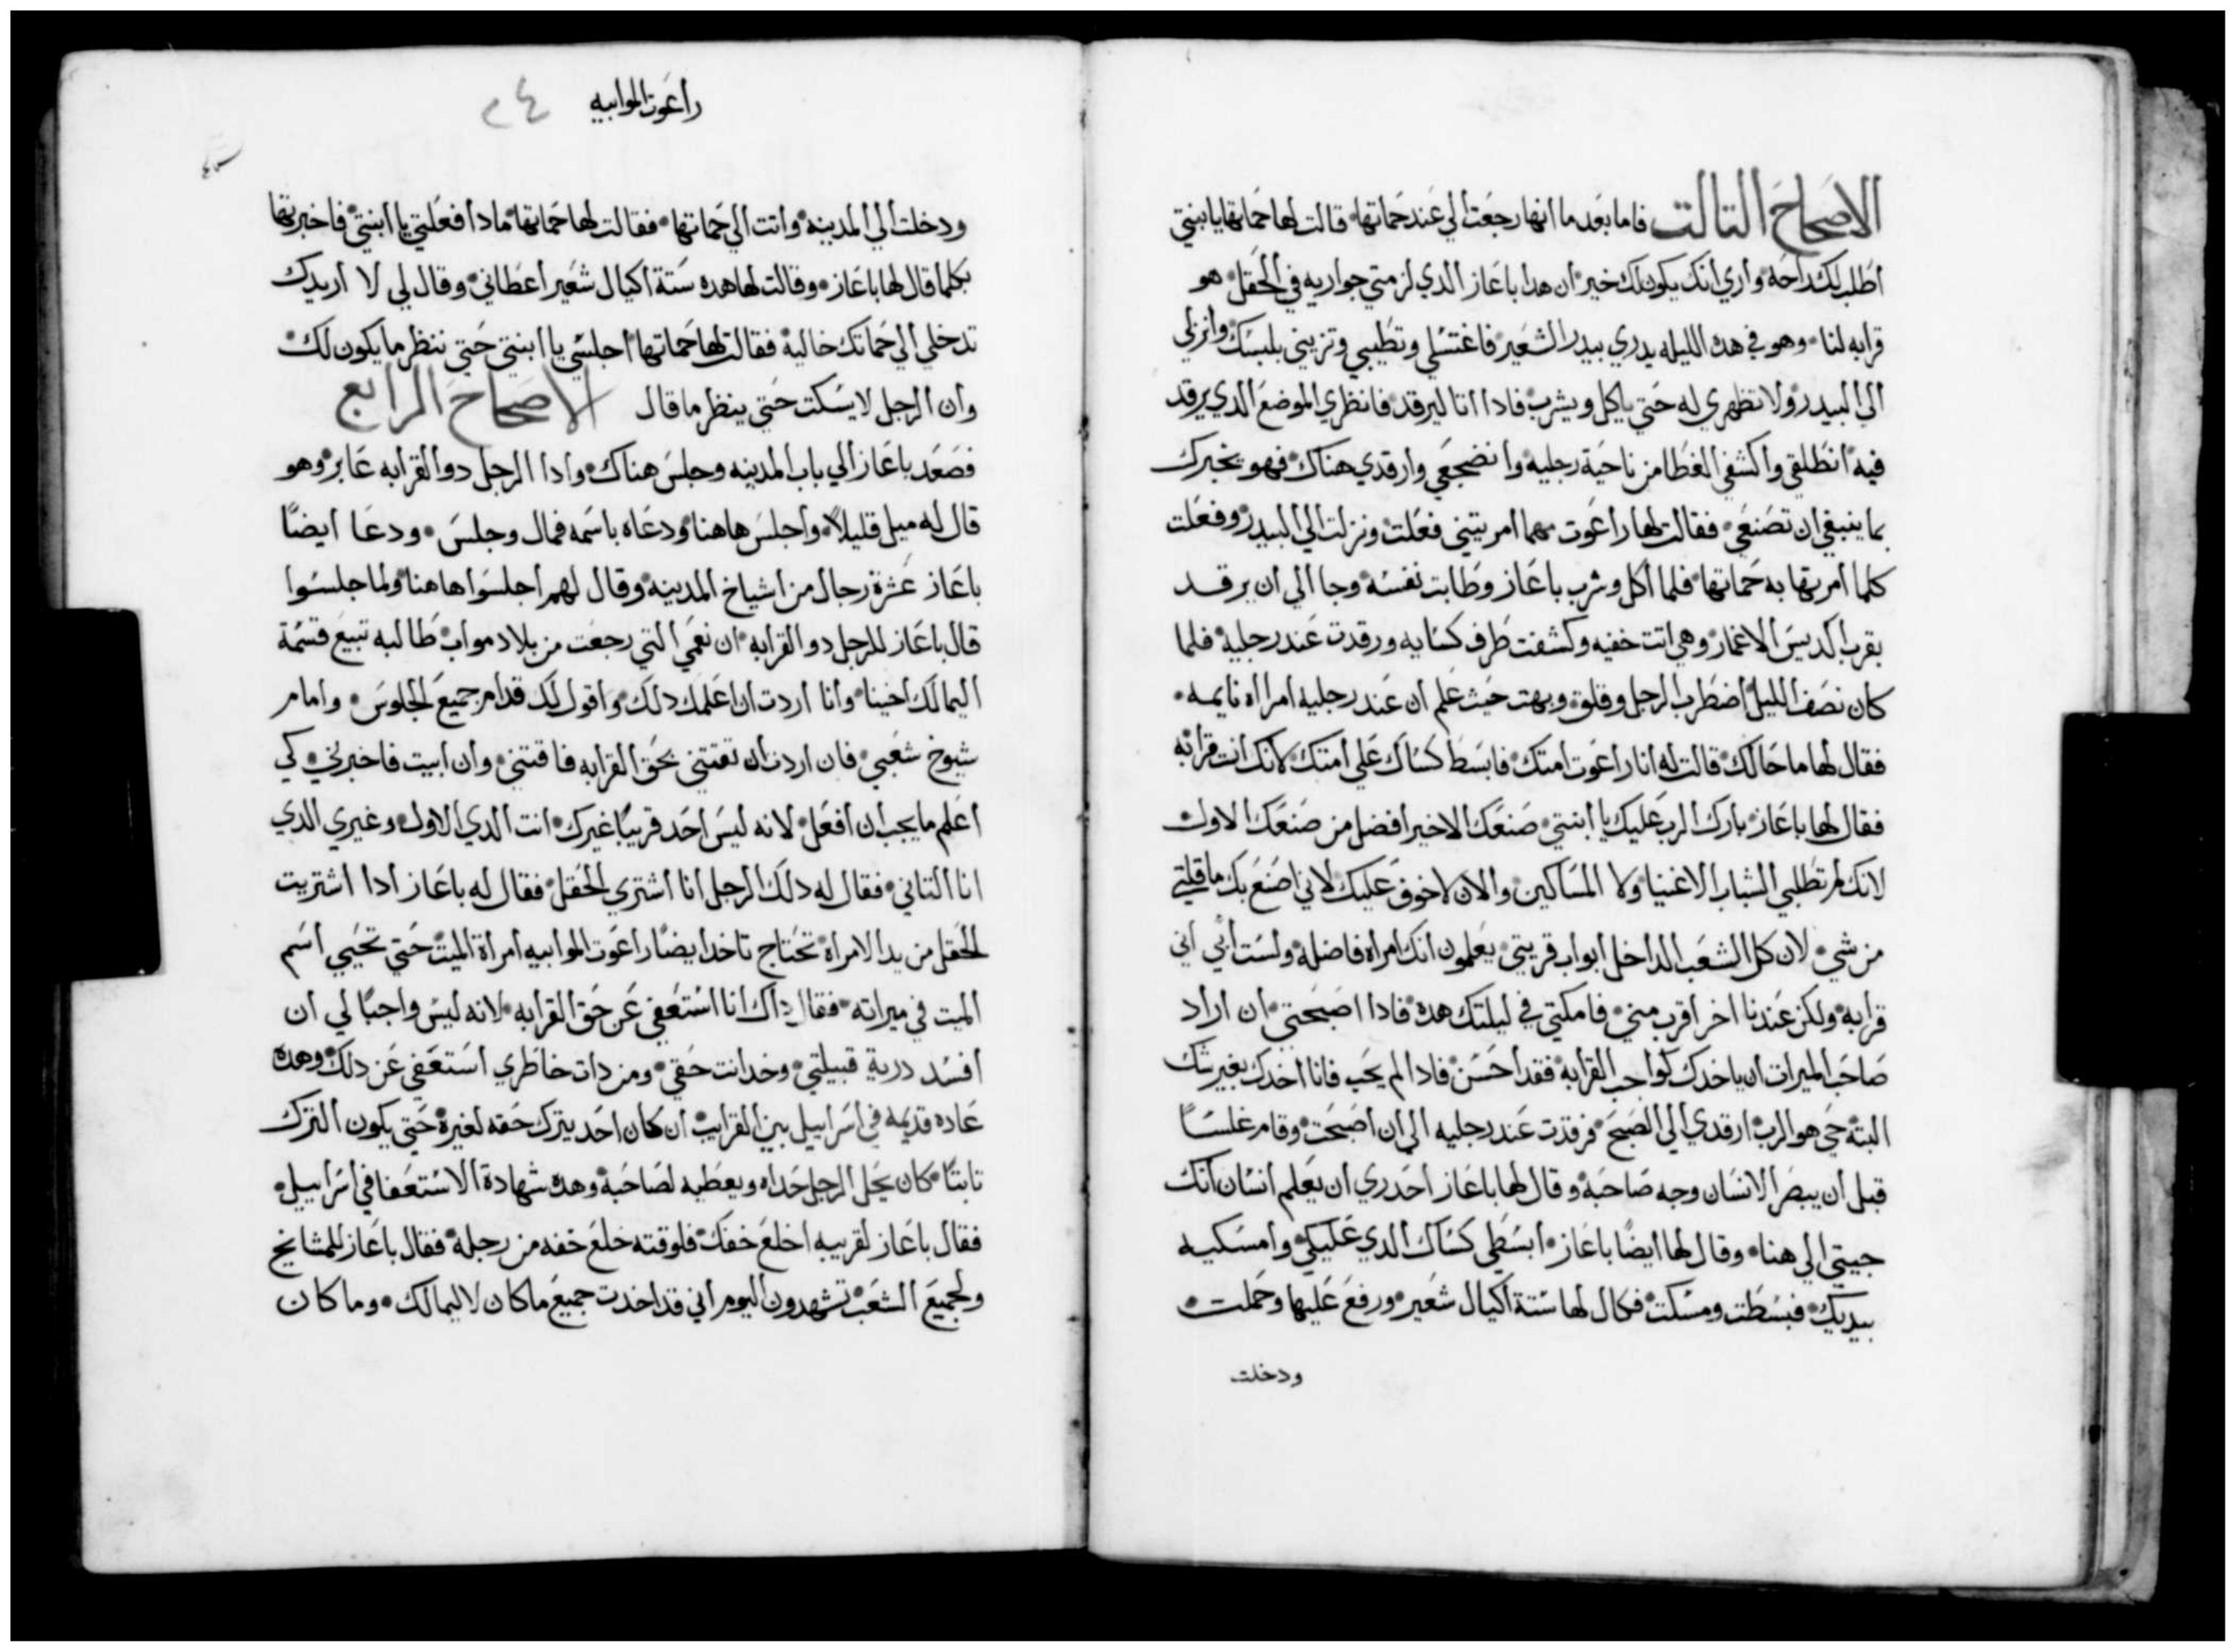 الاصحاح التالت فاما بعد ما انها رجعت الي عند حماتها قالت لها حماتها يا ابنتي
اطلب لك راحه واري انك يكون لك خير ان هدا باعاز الدي لزمتي جواريه في الحقل هو
قرابه لنا وهو في هده الليله يدري بيدر الشعير فاغتسلي وتطيبي وتزيني بلبسك وانزلي
الي البيدر ولا تظهري له حتي ياكل ويشرب فادا اتا ليرقد فانظري الموضع الدي يرقد
فيه انطلقي واكشفي الغطا من ناحية رجليه وانضجعي وارقدي هناك فهو يخبرك
بما ينبغي ان تصنعي فقالت لها راعوت مهما امرتيني فعلت ونزلت الي البيدر وفعلت
كلما امرتها به حماتها فلما اكل وشرب باعاز وطابت نفسه وجا الي ان يرقد
بقرب اكديس الاغمار وهي اتت خفيه وكشفت طرف كسايه ورقدت عند رجليه فلما
كان نصف الليل اضطرب الرجل وقلق وبهت حيث علم ان عند رجليه امراه نايمه
فقال لها ما حالك قالت له انا راعوت امتك فابسط كساك علي امتك لانك انت قرابه
فقال لها باعاز بارك الرب عليك يا ابنتي صنعك الاخير افضل من صنعك الاول
لانك لم تطلبي الشباب الاغنيا ولا المساكين والان لا خوف عليك لاني اصنع بك ما قلتي
من شي لان كل الشعب الداخل ابواب قريتي يعلمون انك امراه فاضله ولست ابي اني
قرابه ولكن عندنا اخر اقرب مني فامكتي في ليلتك هده فادا اصبحتي ان اراد
صاحب الميرات ان ياخدك كواجب القرابه فقد احسن فادا لم يحب فانا اخدك بغير شك
البته حي هو الرب ارقدي الي الصبح فرقدت عند رجليه الي ان اصبحت وقام غلسًا
قبل ان يبصر الانسان وجه صاحبه وقال لها باعاز احدري ان يعلم انسان انك
جيتي الي هنا وقال لها ايضًا باعاز ابسطي كساك الدي عليكي وامسكيه
بيديك فبسطت ومسكت فكال لها ستة اكيال شعير ورفع عليها وحملت
ودخلت
راعوت الموابيه ٢٤
ودخلت الي المدينه واتت الي حماتها فقالت لها حماتها مادا فعلتي يا ابنتي فاخبرتها
بكلما قال لها باعاز وقالت لها هده ستة اكيال شعير اعطاني وقال لي لا اريدك
تدخلي الي حماتك خاليه فقالت لها حماتها اجلسي يا ابنتي حتي ننظر ما يكون لك
وان الرجل لا يسكت حتي ينظر ما قال الاصحاح الرابع
فصعد باعاز الي باب المدينه وجلس هناك وادا الرجل دو القرابه عابر وهو
قال له ميل قليلاً واجلس هاهنا ودعاه باسمه فمال وجلس ودعا ايضًا
باعاز عشرة رجال من اشياخ المدينه وقال لهم اجلسوا هاهنا ولما جلسوا
قال باعاز للرجل دو القرابه ان نعمي التي رجعت من بلاد مواب طالبه تبيع قسمة
اليمالك اخينا وانا اردت ان اعلمك دلك واقول لك قدام جميع الجلوس وامام
شيوخ شعبي فان اردت ان تقتني بحق القرابه فاقتني وان ابيت فاخبرني كي
اعلم ما يجب ان افعل لانه ليس احد قريبًا غيرك انت الدي الاول وغيري الدي
انا التاني فقال له دلك الرجل انا اشتري الحقل فقال له باعاز ادا اشتريت
الحقل من يد الامراه تحتاج تاخد ايضًا راعوت الموابيه امراة الميت حتي تحيي اسم
الميت في ميراته فقال داك انا استعفي عن حق القرابه لانه ليس واجبًا لي ان
افسد درية قبيلتي وخد انت حقي ومن دات خاطري استعفي عن دلك وهده
عاده قديمه في اسراييل بين القرايب ان كان احد يترك حقه لغيره حتي يكون الترك
تابتًا كان يحل الرجل حداه ويعطيه لصاحبه وهده شهادة الاستعفا في اسراييل
فقال باعاز لقريبه اخلع خفك فلوقته خلع خفه من رجله فقال باعاز للمشايخ
ولجميع الشعب تشهدون اليوم اني قد اخدت جميع ما كان لاليمالك وما كان